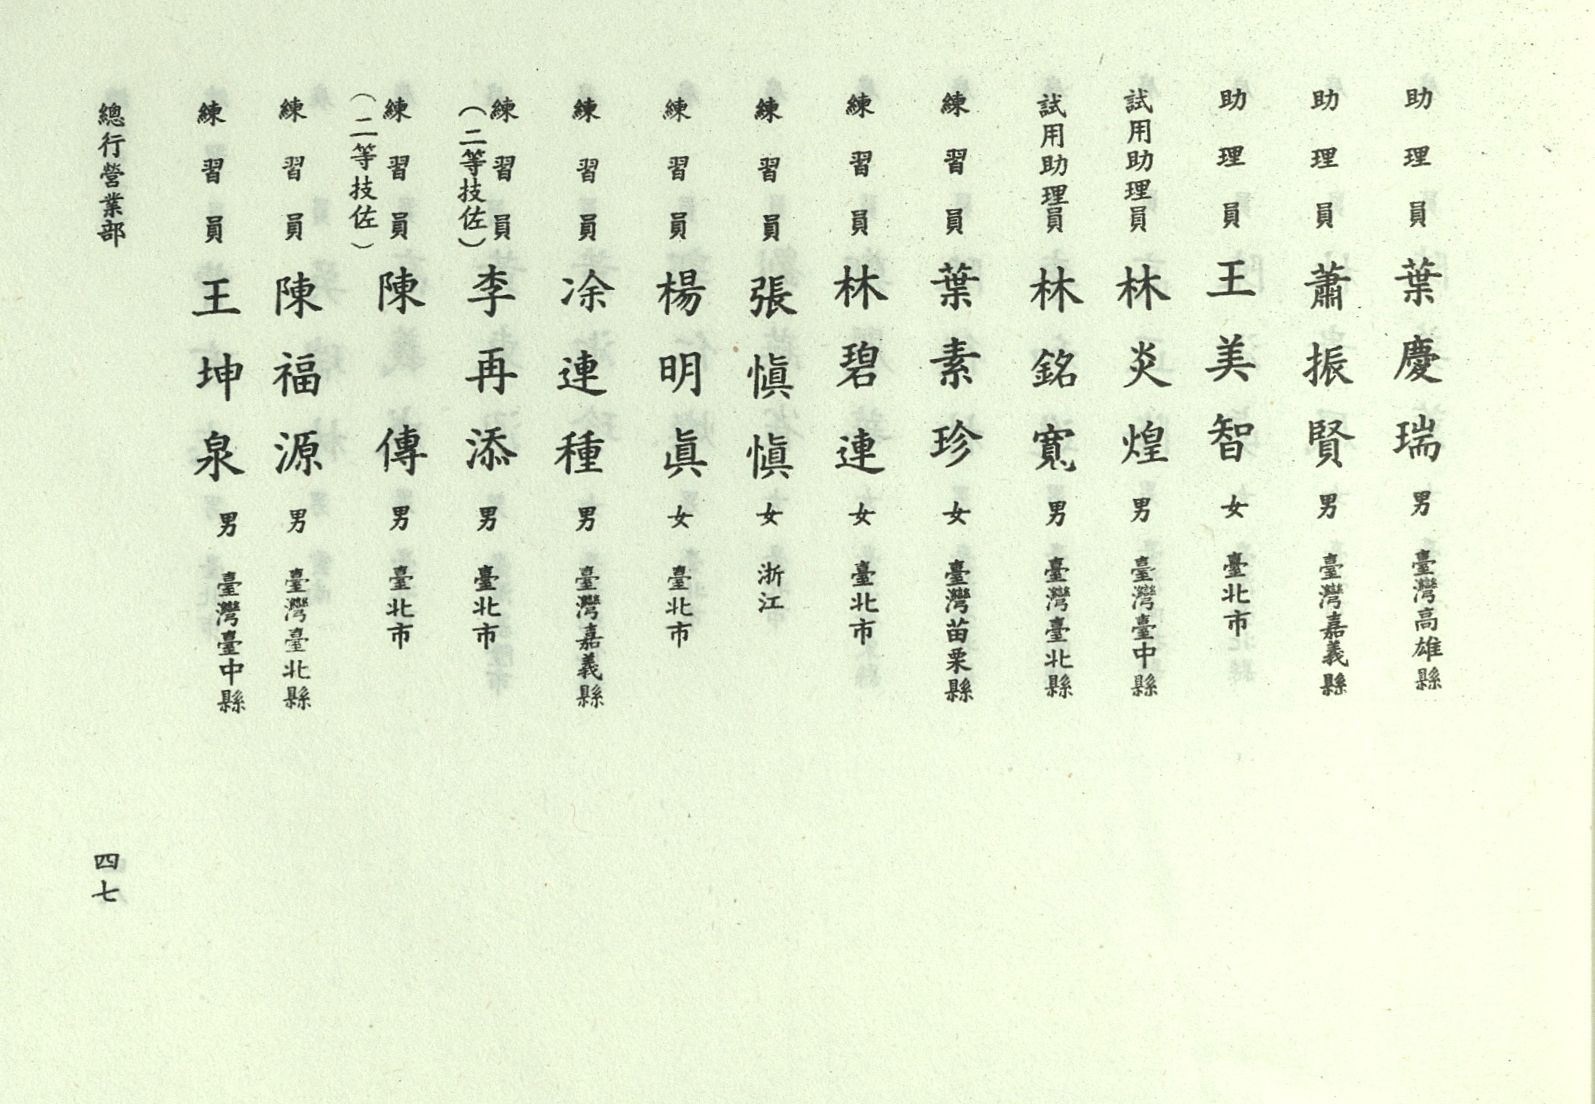 助理員 葉慶瑞 男 臺灣高雄縣
助理員 蕭振賢 男 臺灣嘉義縣
助理員 王美智 女 臺北市
試用助理員 林炎煌 男 臺灣臺中縣
試用助理員 林銘寬 男 臺灣臺北縣
練習員 葉素珍 女 臺灣苗栗縣
練習員 林碧連 女 臺北市
練習員 張愼愼 女 浙江
練習員 楊明眞 女 臺北市
練習員 凃連種 男 臺灣嘉義縣
練習員 李再添 男 臺北市
(二等技佐)
練習員 陳傳 男 臺北市
(二等技佐)
練習員 陳福源 男 臺灣臺北縣
練習員 王坤泉 男 臺灣臺中縣
總行營業部 四七